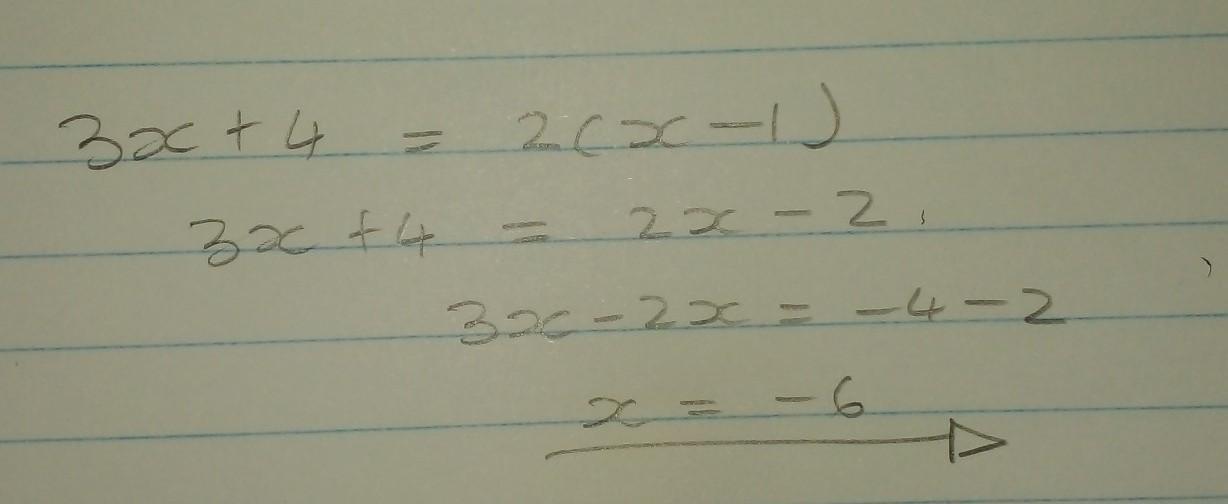 3x + 4 = 2(x - 1)
3x + 4 = 2x - 2
3x - 2x = -4 - 2
x = -6